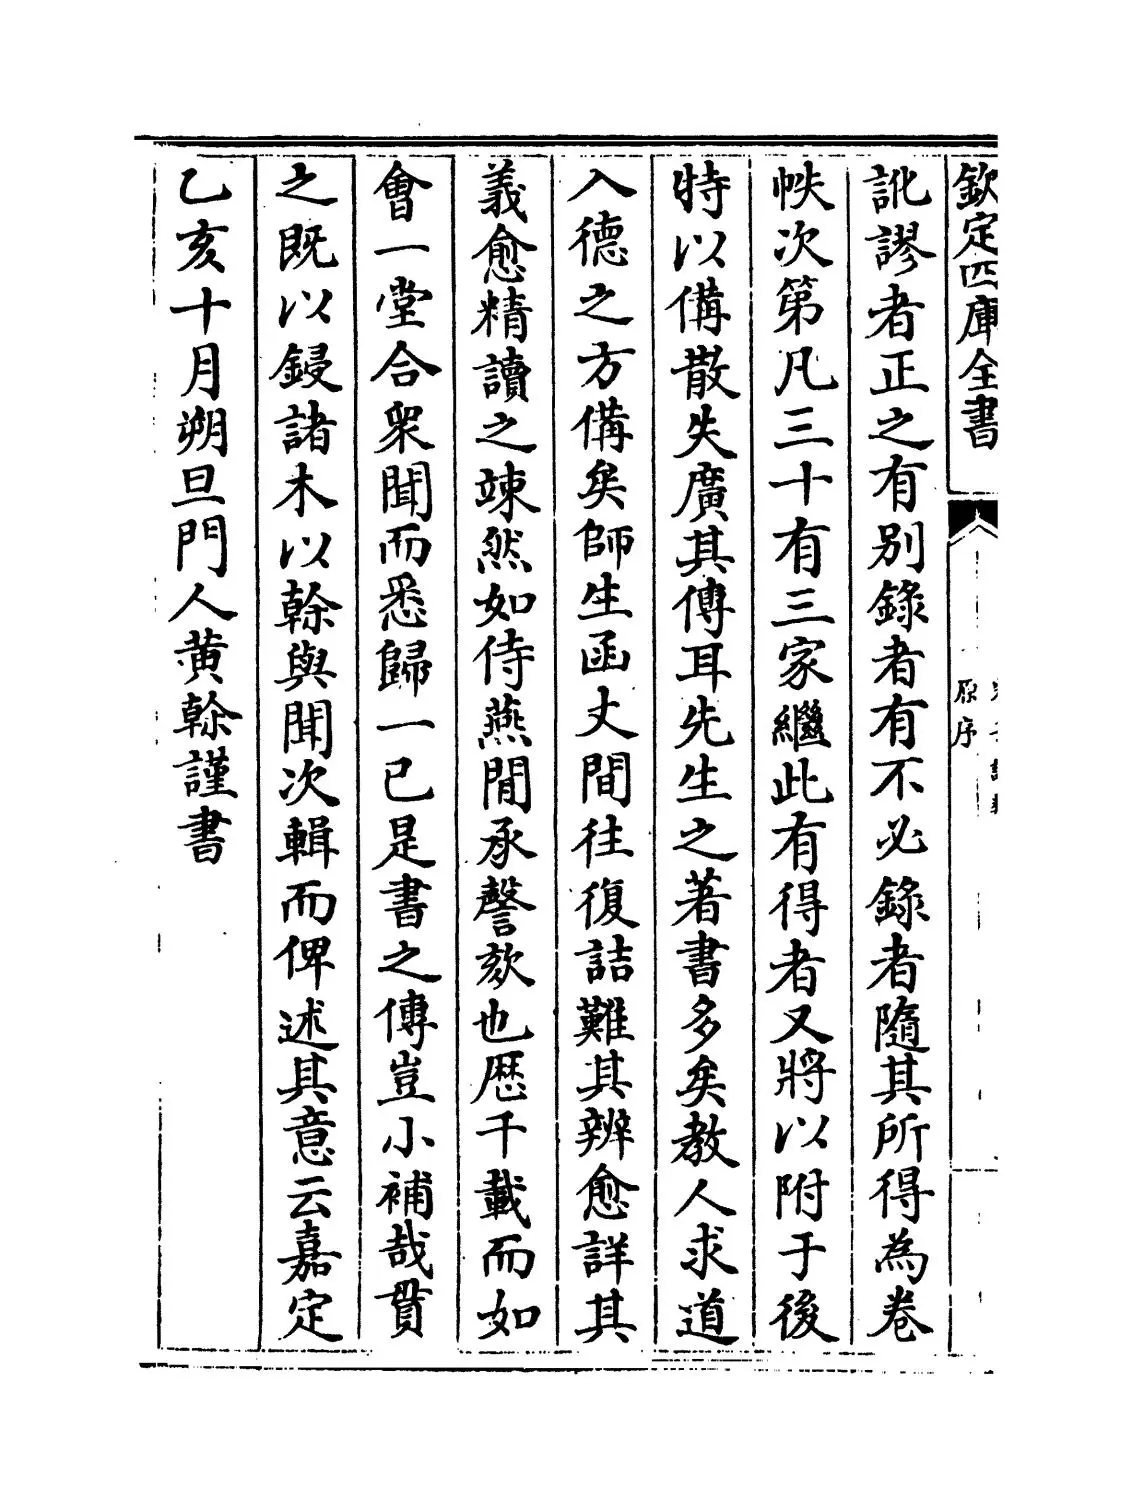 欽定四庫全書
原序
訛謬者正之有別錄者有不必錄者隨其所得為卷
帙次第凡三十有三家繼此有得者又將以附于後
特以備散失廣其傳耳先生之著書多矣教人求道
入德之方備矣師生函丈間往復詰難其辨愈詳其
義愈精讀之竦然如侍燕閒承謦欬也歷千載而如
會一堂合衆聞而悉歸一已是書之傳豈小補哉貫
之既以鋟諸木以榦與聞次輯而俾述其意云嘉定
乙亥十月朔旦門人黄榦謹書